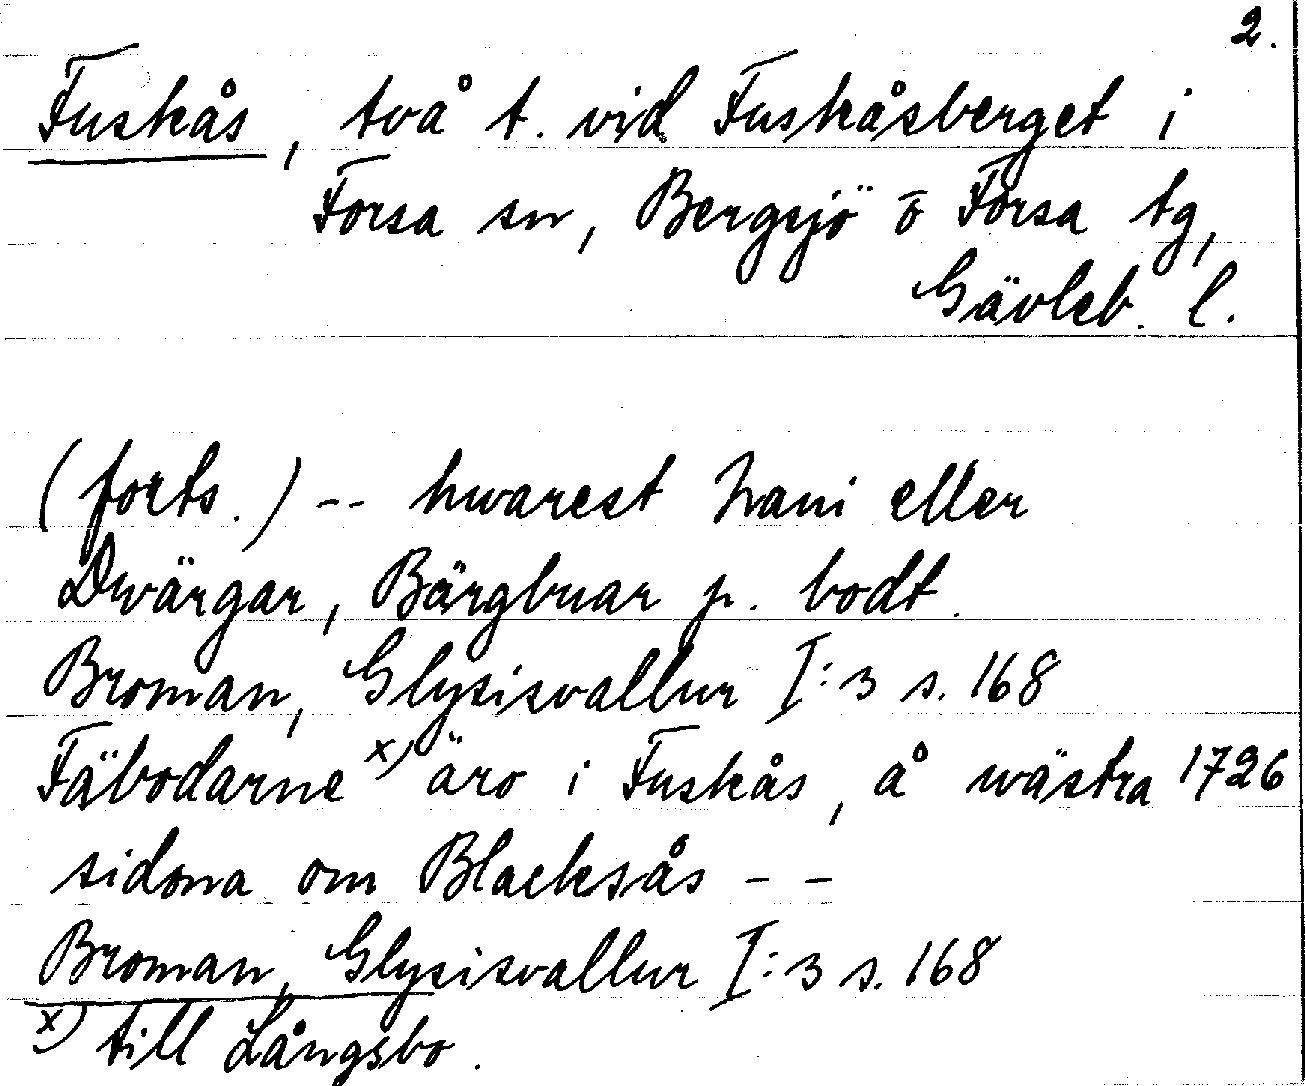 2.
Fuskås, två t. vid Fuskåsberget i
Forsa sn, Bergsjö o Forsa tg,
Gävleb. l.
(forts.) -- hwarest Nani eller
Dwärgar, Bärgbuar p. bodt.
Broman, Glysisvallur I:3 s. 168
Fäbodarne x) äro i Fuskås, å wästra 1726
sidona om Blacksås - -
Broman, Glysisvallur I:3 s. 168
x) till Långsbo.